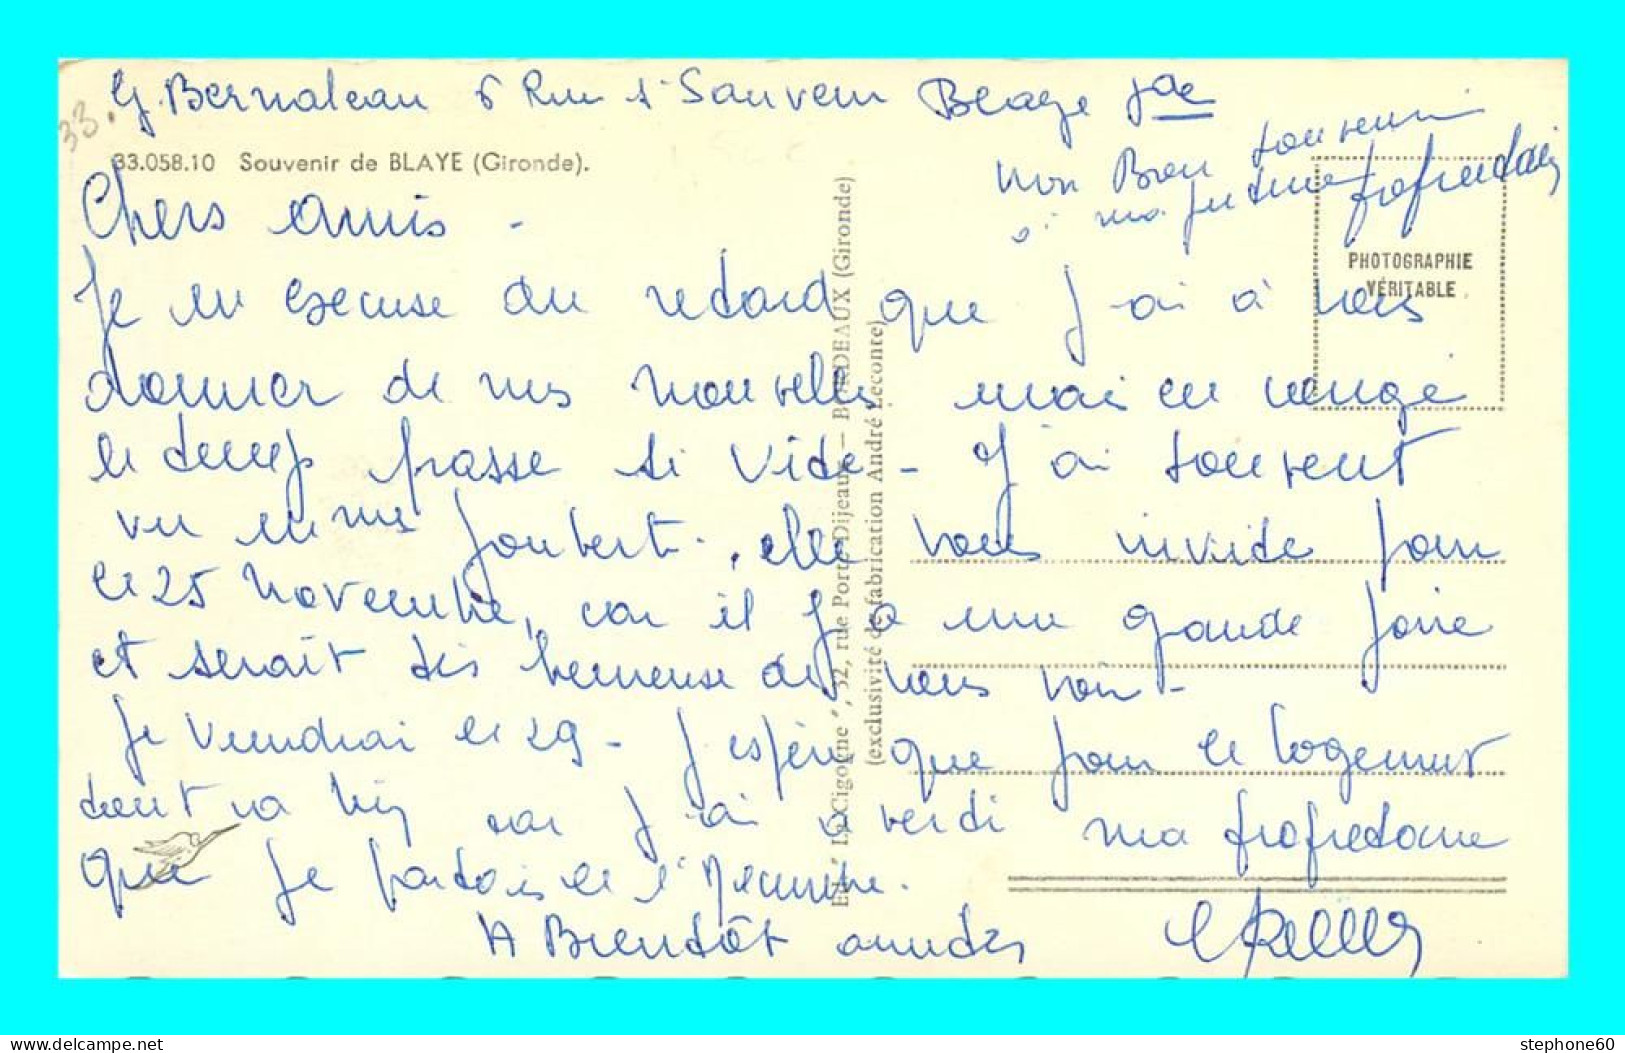 33.
G. Bernaleau 6 Rue St Sauveur Blaye Gde
33.058.10 Souvenir de BLAYE (Gironde).
mon Bon souvenir
à ma future propriétaire
PHOTOGRAPHIE
VÉRITABLE
Chers amis -
Je m excuse du retard que j ai à vous
donner de mes nouvelles mais en congé
le temps passe si vide - J'ai souvent
vu me Joubert. elle vous invide pour
le 25 Novembre, car il y a une grande foire
et serait très heureuse de vous voir -
Je viendrai le 29 - J espère que pour le logement
tout va bien car j'ai averdi ma propriedaire
que je partais le 1er Décembre.
A Bientôt amitiés
Ed. " La Cigogne ", 52, rue Porte-Dijeaux — BORDEAUX (Gironde)
(exclusivité de fabrication André Leconte)
stephone60